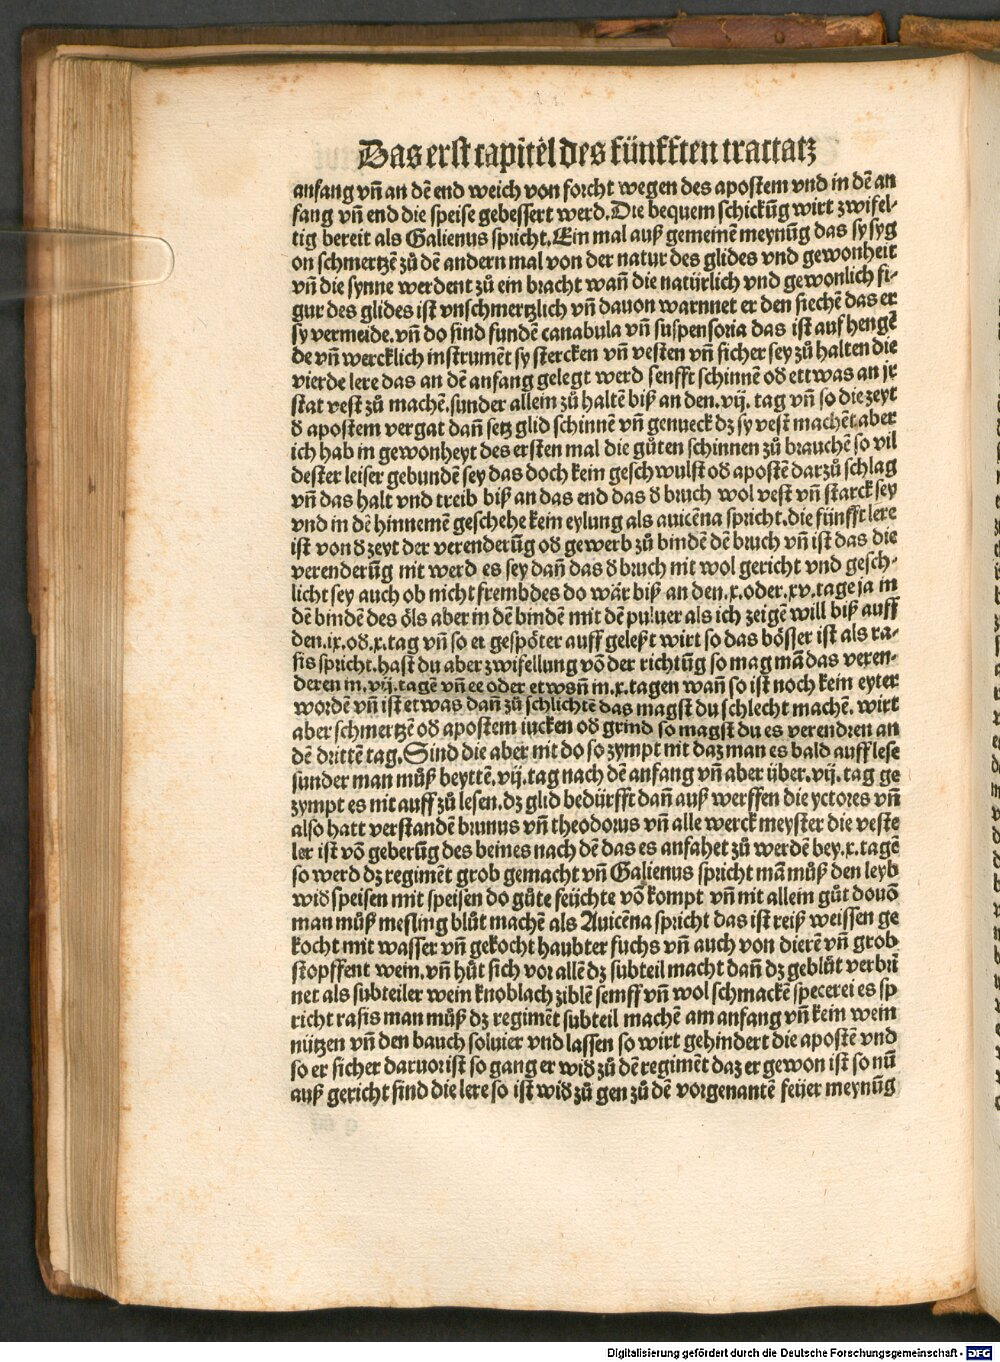 Das erst capitel des fünfften tractatz
anfang vñ an dē end weich von forcht wegen des apostem vnd in dē an
fang vñ end die speise gebessert werd. Die bequem schickūg wirt zwifel-
tig bereit als Galienus spricht. Ein mal auß gemeinē meynūg das sy syg
on schmertzē zů dē andern mal von der natur des glides vnd gewonheit
vñ die synne werdent zů ein bracht wañ die natürlich vnd gewonlich fi-
gur des glides ist vnschmertzlich vñ dauon warnnet er den siechē das er
sy vermeide. vñ do sind fundē canabula vñ suspensoria das ist auf hengē
de vñ wercklich instrumēt sy stercken vñ vesten vñ sicher sey zů halten die
vierde lere das an dē anfang gelegt werd senfft schinnē oð ettwas an jr
stat vest zů machē. sunder allein zů haltē biß an den. vij. tag vñ so die zeyt
ð apostem vergat dañ setz glid schinnē vñ genueck dz sy vest machēt aber
ich hab in gewonheyt des ersten mal die gůten schinnen zů brauchē so vil
dester leiser gebundē sey das doch kein geschwulst oð apostē darzů schlag
vñ das halt vnd treib biß an das end das ð bruch wol vest vñ starck sey
vnd in dē hinnemē geschehe kein eylung als auicēna spricht. die fünfft lere
ist von ð zeyt der verenderūg oð gewerb zů bindē dē bruch vñ ist das die
verenderūg nit werd es sey dañ das ð bruch nit wol gericht vnd gesch-
licht sey auch ob nicht frembdes do wär biß an den. x. oder. xv. tage ja in
dē bindē des öls aber in dē bindē mit dē puluer als ich zeigē will biß auff
den. ix. oð. x. tag vñ so er gespöter auff geleßt wirt so das bösser ist als ra-
sis spricht. hast du aber zwifellung vō der richtūg so mag mā das veren-
deren in. vij. tagē vñ ee oder etwañ in. x. tagen wañ so ist noch kein eyter
wordē vñ ist etwas dañ zů schlichtē das magst du schlecht machē. wirt
aber schmertzē oð apostem iucken oð grind so magst du es verendren an
dē drittē tag. Sind die aber nit do so zympt nit daz man es bald auff lese
sunder man můß beyttē. vij. tag nach dē anfang vñ aber über. vij. tag ge
zympt es nit auff zů lesen. dz glid bedürfft dañ auß werffen die yctores vñ
also hatt verstandē brunus vñ theodorus vñ alle werck meyster die veste
ler ist vō geberūg des beines nach dē das es anfahet zů werdē bey. x. tagē
so werd dz regimēt grob gemacht vñ Galienus spricht mā můß den leyb
wið speisen mit speisen do gůte feüchte vō kompt vñ nit allein gůt douō
man můß mesling blůt machē als Auicēna spricht das ist reiß weissen ge
kocht mit wasser vñ gekocht haubter fuchs vñ auch von dierē vñ grob
stopffent wein. vñ hüt sich vor allē dz subteil macht dañ dz geblůt verbrī
net als subteiler wein knoblach ziblē semff vñ wol schmackē specerei es sp
richt rasis man můß dz regimēt subteil machē am anfang vñ kein wein
nützen vñ den bauch soluier vnd lassen so wirt gehindert die apostē vnd
so er sicher daruor ist so gang er wið zů dē regimēt daz er gewon ist so nū
auß gericht sind die lere so ist wið zů gen zů dē vorgenantē feüer meynūg
Digitalisierung gefördert durch die Deutsche Forschungsgemeinschaft - DFG